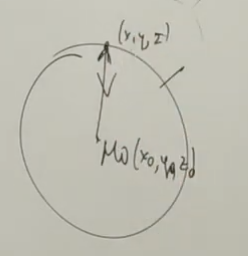 (x, y, z)
M0(x0, y0, z0)